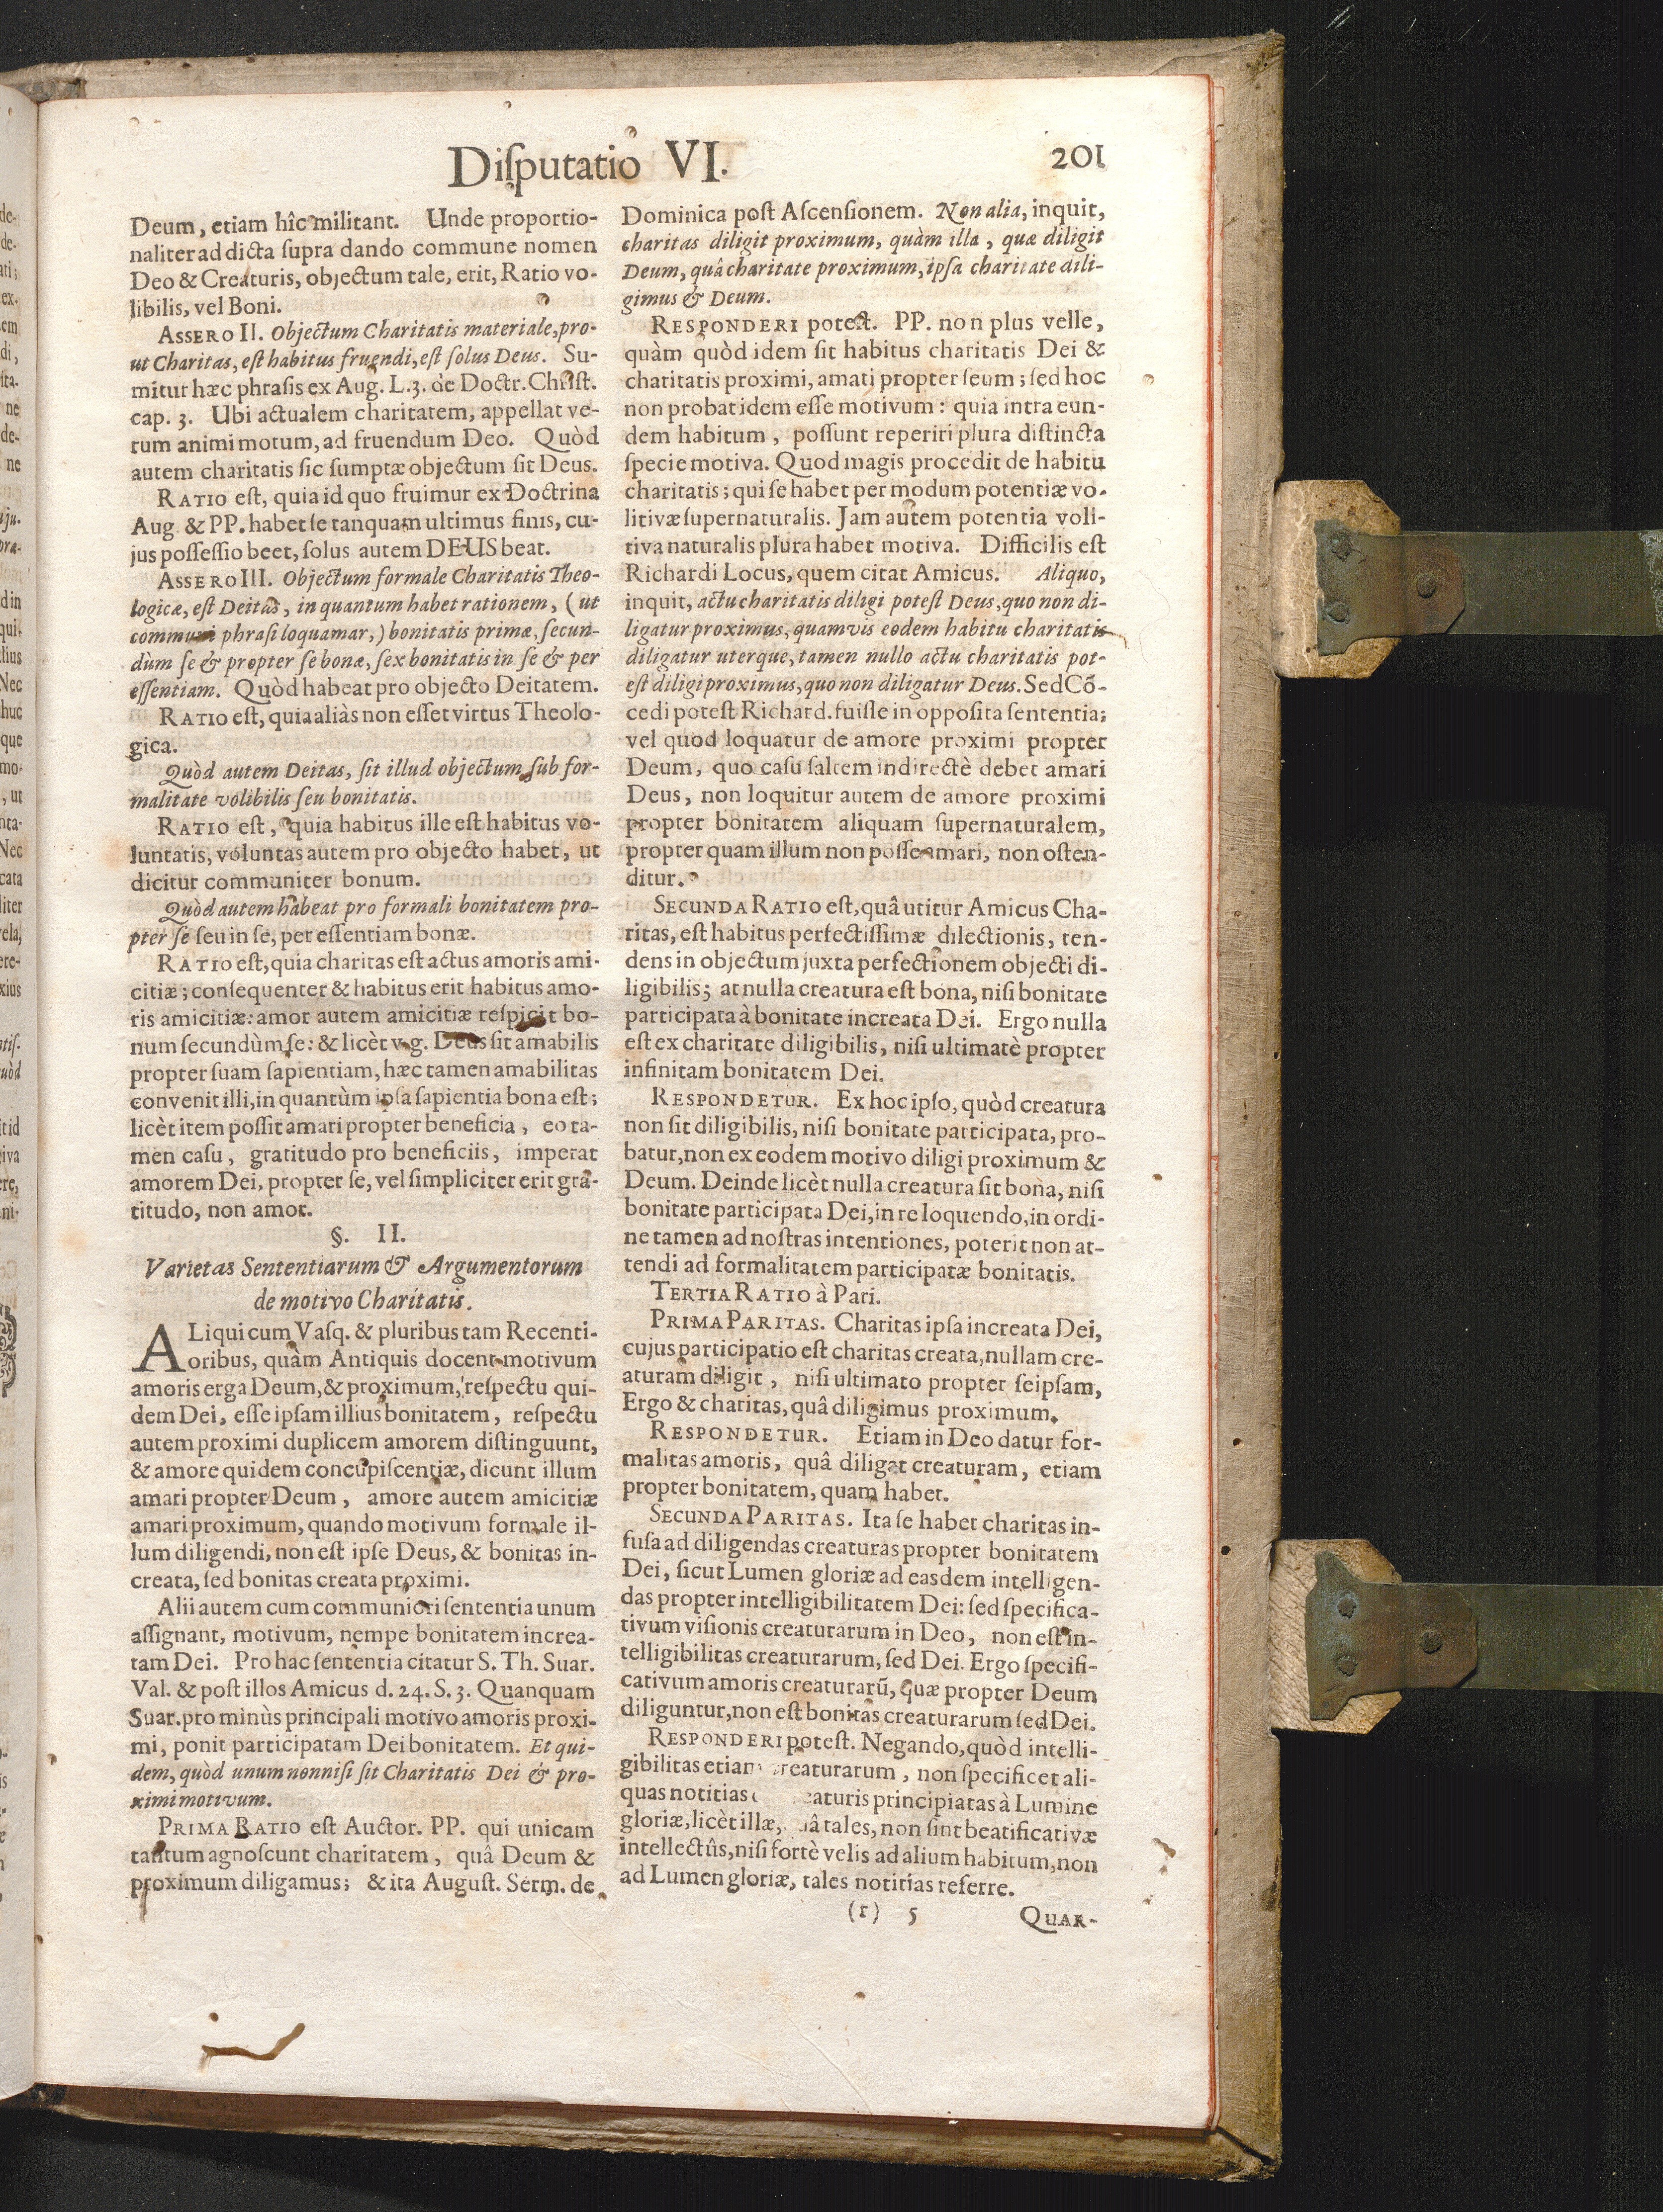 Disputatio VI.
201
Deum, etiam hîc militant. Unde proportio-
naliter ad dicta supra dando commune nomen
Deo & Creaturis, objectum tale, erit, Ratio vo-
libilis, vel Boni.
ASSERO II. Objectum Charitatis materiale, pro-
ut Charitas, est habitus fruendi, est solus Deus. Su-
mitur hæc phrasis ex Aug. L.3. de Doctr. Christ.
cap. 3. Ubi actualem charitatem, appellat ve-
rum animi motum, ad fruendum Deo. Quòd
autem charitatis sic sumptæ objectum sit Deus.
RATIO est, quia id quo fruimur ex Doctrina
Aug. & PP. habet se tanquam ultimus finis, cu-
jus possessio beet, solus autem DEUS beat.
ASSERO III. Objectum formale Charitatis Theo-
logicæ, est Deitas, in quantum habet rationem, (ut
communi phrasi loquamar,) bonitatis primæ, secun-
dùm se & propter se bonæ, sex bonitatis in se & per
essentiam. Quòd habeat pro objecto Deitatem.
RATIO est, quia aliàs non esset virtus Theolo-
gica.
Quòd autem Deitas, sit illud objectum sub for-
malitate volibilis seu bonitatis.
RATIO est, quia habitus ille est habitus vo-
luntatis, voluntas autem pro objecto habet, ut
dicitur communiter bonum.
Quòd autem habeat pro formali bonitatem pro-
pter se seu in se, per essentiam bonæ.
RATIO est, quia charitas est actus amoris ami-
citiæ; consequenter & habitus erit habitus amo-
ris amicitiæ: amor autem amicitiæ respicit bo-
num secundùm se: & licèt v.g. Deus sit amabilis
propter suam sapientiam, hæc tamen amabilitas
convenit illi, in quantùm ipsa sapientia bona est;
licèt item possit amari propter beneficia, eo ta-
men casu, gratitudo pro beneficiis, imperat
amorem Dei, propter se, vel simpliciter erit gra-
titudo, non amor.
§. II.
Varietas Sententiarum & Argumentorum
de motivo Charitatis.
ALiqui cum Vasq. & pluribus tam Recenti-
oribus, quàm Antiquis docent motivum
amoris erga Deum, & proximum, respectu qui-
dem Dei, esse ipsam illius bonitatem, respectu
autem proximi duplicem amorem distinguunt,
& amore quidem concupiscentiæ, dicunt illum
amari propter Deum, amore autem amicitiæ
amari proximum, quando motivum formale il-
lum diligendi, non est ipse Deus, & bonitas in-
creata, sed bonitas creata proximi.
Alii autem cum communiori sententia unum
assignant, motivum, nempe bonitatem increa-
tam Dei. Pro hac sententia citatur S. Th. Suar.
Val. & post illos Amicus d. 24. S. 3. Quanquam
Suar. pro minùs principali motivo amoris proxi-
mi, ponit participatam Dei bonitatem. Et qui-
dem, quòd unum nonnisi sit Charitatis Dei & pro-
ximi motivum.
PRIMA RATIO est Auctor. PP. qui unicam
tantum agnoscunt charitatem, quâ Deum &
proximum diligamus; & ita August. Serm. de
Dominica post Ascensionem. Non alia, inquit,
charitas diligit proximum, quàm illa, quæ diligit
Deum, quâ charitate proximum, ipsa charitate dili-
gimus & Deum.
RESPONDERI potest. PP. non plus velle,
quàm quòd idem sit habitus charitatis Dei &
charitatis proximi, amati propter seum; sed hoc
non probat idem esse motivum: quia intra eun-
dem habitum, possunt reperiri plura distincta
specie motiva. Quod magis procedit de habitu
charitatis; qui se habet per modum potentiæ vo-
litivæ supernaturalis. Jam autem potentia voli-
tiva naturalis plura habet motiva. Difficilis est
Richardi Locus, quem citat Amicus. Aliquo,
inquit, actu charitatis diligi potest Deus, quo non di-
ligatur proximus, quamvis eodem habitu charitatis
diligatur uterque, tamen nullo actu charitatis pot-
est diligi proximus, quo non diligatur Deus. Sed Cō-
cedi potest Richard. fuisse in opposita sententia;
vel quòd loquatur de amore proximi propter
Deum, quo casu saltem indirectè debet amari
Deus, non loquitur autem de amore proximi
propter bonitatem aliquam supernaturalem,
propter quam illum non posse amari, non osten-
ditur.
SECUNDA RATIO est, quâ utitur Amicus Cha-
ritas, est habitus perfectissimæ dilectionis, ten-
dens in objectum juxta perfectionem objecti di-
ligibilis; at nulla creatura est bona, nisi bonitate
participata à bonitate increata Dei. Ergo nulla
est ex charitate diligibilis, nisi ultimatè propter
infinitam bonitatem Dei.
RESPONDETUR. Ex hoc ipso, quòd creatura
non sit diligibilis, nisi bonitate participata, pro-
batur, non ex eodem motivo diligi proximum &
Deum. Deinde licèt nulla creatura sit bona, nisi
bonitate participata Dei, in re loquendo, in ordi-
ne tamen ad nostras intentiones, poterit non at-
tendi ad formalitatem participatæ bonitatis.
TERTIA RATIO à Pari.
PRIMA PARITAS. Charitas ipsa increata Dei,
cujus participatio est charitas creata, nullam cre-
aturam diligit, nisi ultimato propter seipsam,
Ergo & charitas, quâ diligimus proximum.
RESPONDETUR. Etiam in Deo datur for-
malitas amoris, quâ diligat creaturam, etiam
propter bonitatem, quam habet.
SECUNDA PARITAS. Ita se habet charitas in-
fusa ad diligendas creaturas propter bonitatem
Dei, sicut Lumen gloriæ ad easdem intelligen-
das propter intelligibilitatem Dei: sed specifica-
tivum visionis creaturarum in Deo, non est in-
telligibilitas creaturarum, sed Dei. Ergo specifi-
cativum amoris creaturarū, quæ propter Deum
diliguntur, non est bonitas creaturarum sed Dei.
RESPONDERI potest. Negando, quòd intelli-
gibilitas etiam creaturarum, non specificet ali-
quas notitias eaturis principiatas à Lumine
gloriæ, licèt illæ, quâ tales, non sint beatificativæ
intellectûs, nisi fortè velis ad alium habitum, non
ad Lumen gloriæ, tales notitias referre.
(r) 5
QUAR-